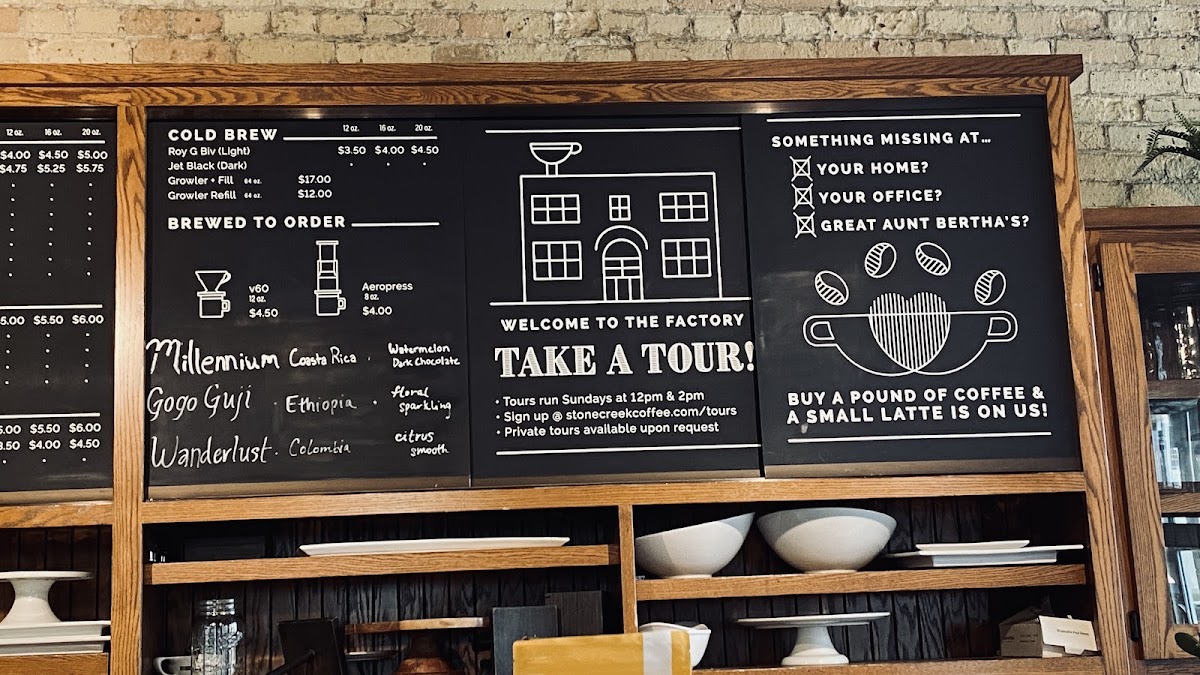 12 oz. 16 oz. 20 oz.
$4.00 $4.50 $5.00
$4.75 $5.25 $5.75
5.00 $5.50 $6.00
5.00 $5.50 $6.00
3.50 $4.00 $4.50
COLD BREW 12 oz. 16 oz. 20 oz.
Roy G Biv (Light) $3.50 $4.00 $4.50
Jet Black (Dark)
Growler + Fill 64 oz. $17.00
Growler Refill 64 oz. $12.00
BREWED TO ORDER
v60
12 oz.
$4.50
Aeropress
8 oz.
$4.00
Millennium Coasta Rica Watermelon
Dark Chocolate
Gogo Guji Ethiopia floral
sparkling
Wanderlust Colombia citrus
smooth
WELCOME TO THE FACTORY
TAKE A TOUR!
• Tours run Sundays at 12pm & 2pm
• Sign up @ stonecreekcoffee.com/tours
• Private tours available upon request
SOMETHING MISSING AT...
YOUR HOME?
YOUR OFFICE?
GREAT AUNT BERTHA'S?
BUY A POUND OF COFFEE &
A SMALL LATTE IS ON US!